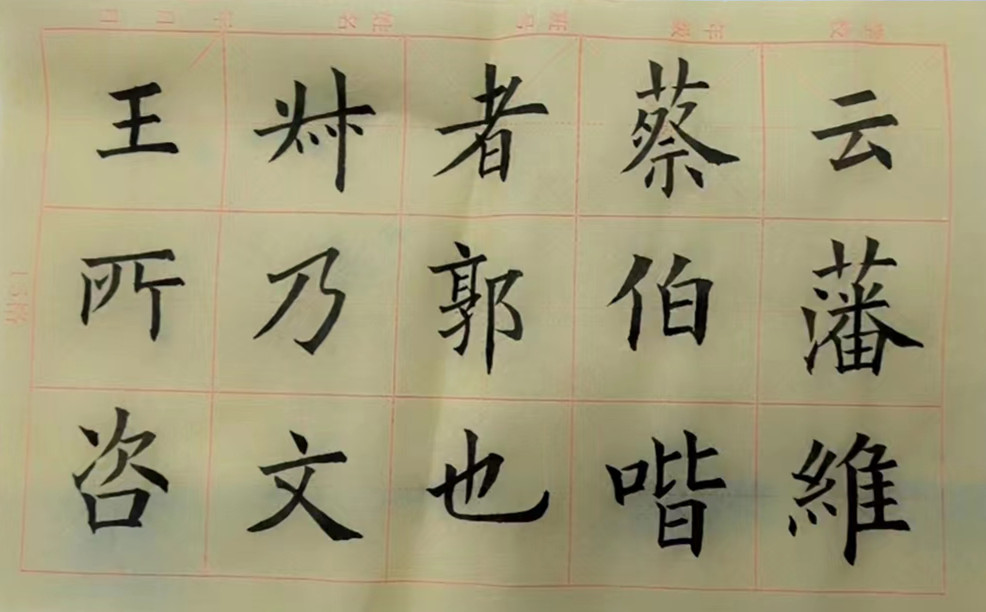 云藩維
蔡伯喈
者郭也
叔乃文
王所咨